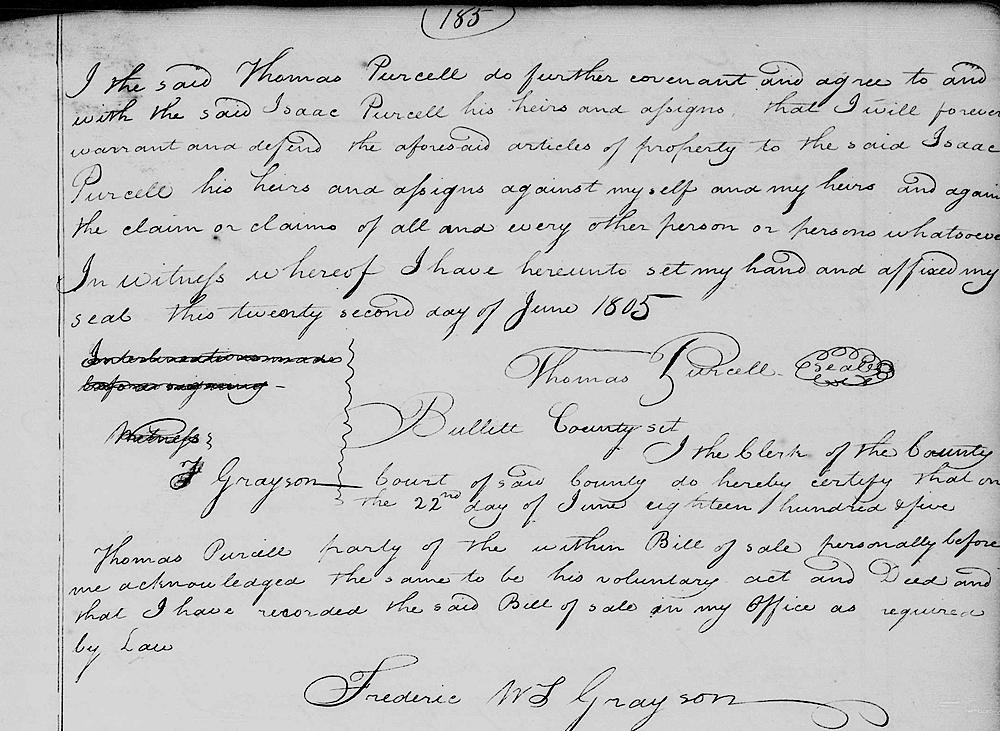 185
I the said Thomas Purcell do further covenant and agree to and
with the said Isaac Purcell his heirs and assigns, that I will forever
warrant and defend the aforesaid articles of property to the said Isaac
Purcell his heirs and assigns against myself and my heirs and again
the claim or claims of all and every other person or persons whatsoeve
In witness whereof I have hereunto set my hand and affixed my
seal this twenty second day of June 1805
Interlineations made
before signing
Thomas Purcell Seal
Witness
Bullitt County sct
I the Clerk of the County
F Grayson
Court of said County do hereby certify that on
the 22nd day of June eighteen hundred & five
Thomas Purcell party of the within Bill of sale personally before
me acknowledged the same to be his voluntary act and Deed and
that I have recorded the said Bill of sale in my office as required
by Law
Frederic W S Grayson